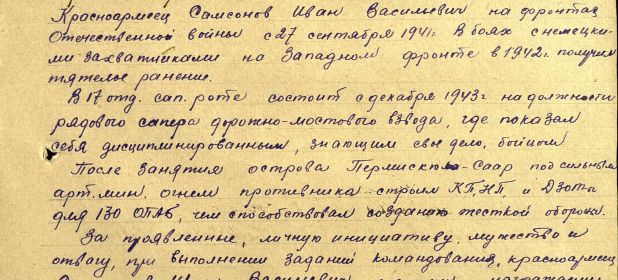 Красноармеец Самсонов Иван Васильевич на фронтах
Отечественной войны с 27 сентября 1941г. В боях с немецки-
ми захватчиками на Западном фронте в 1942г. получил
тяжелое ранение.
В 17 отд. сап. роте состоит с декабря 1943г на должности
рядового сапера дорожно-мостового взвода, где показал
себя дисциплинированным, знающим свое дело, бойцом
После занятия острова Пермиско-Саар под сильным
арт. мин. огнем противника строил КП, НП и Дзоты
для 130 ОПАБ, чем способствовал созданию жесткой обороны.
За проявленные, личную инициативу, мужество и
отвагу, при выполнении заданий командования, красноармеец